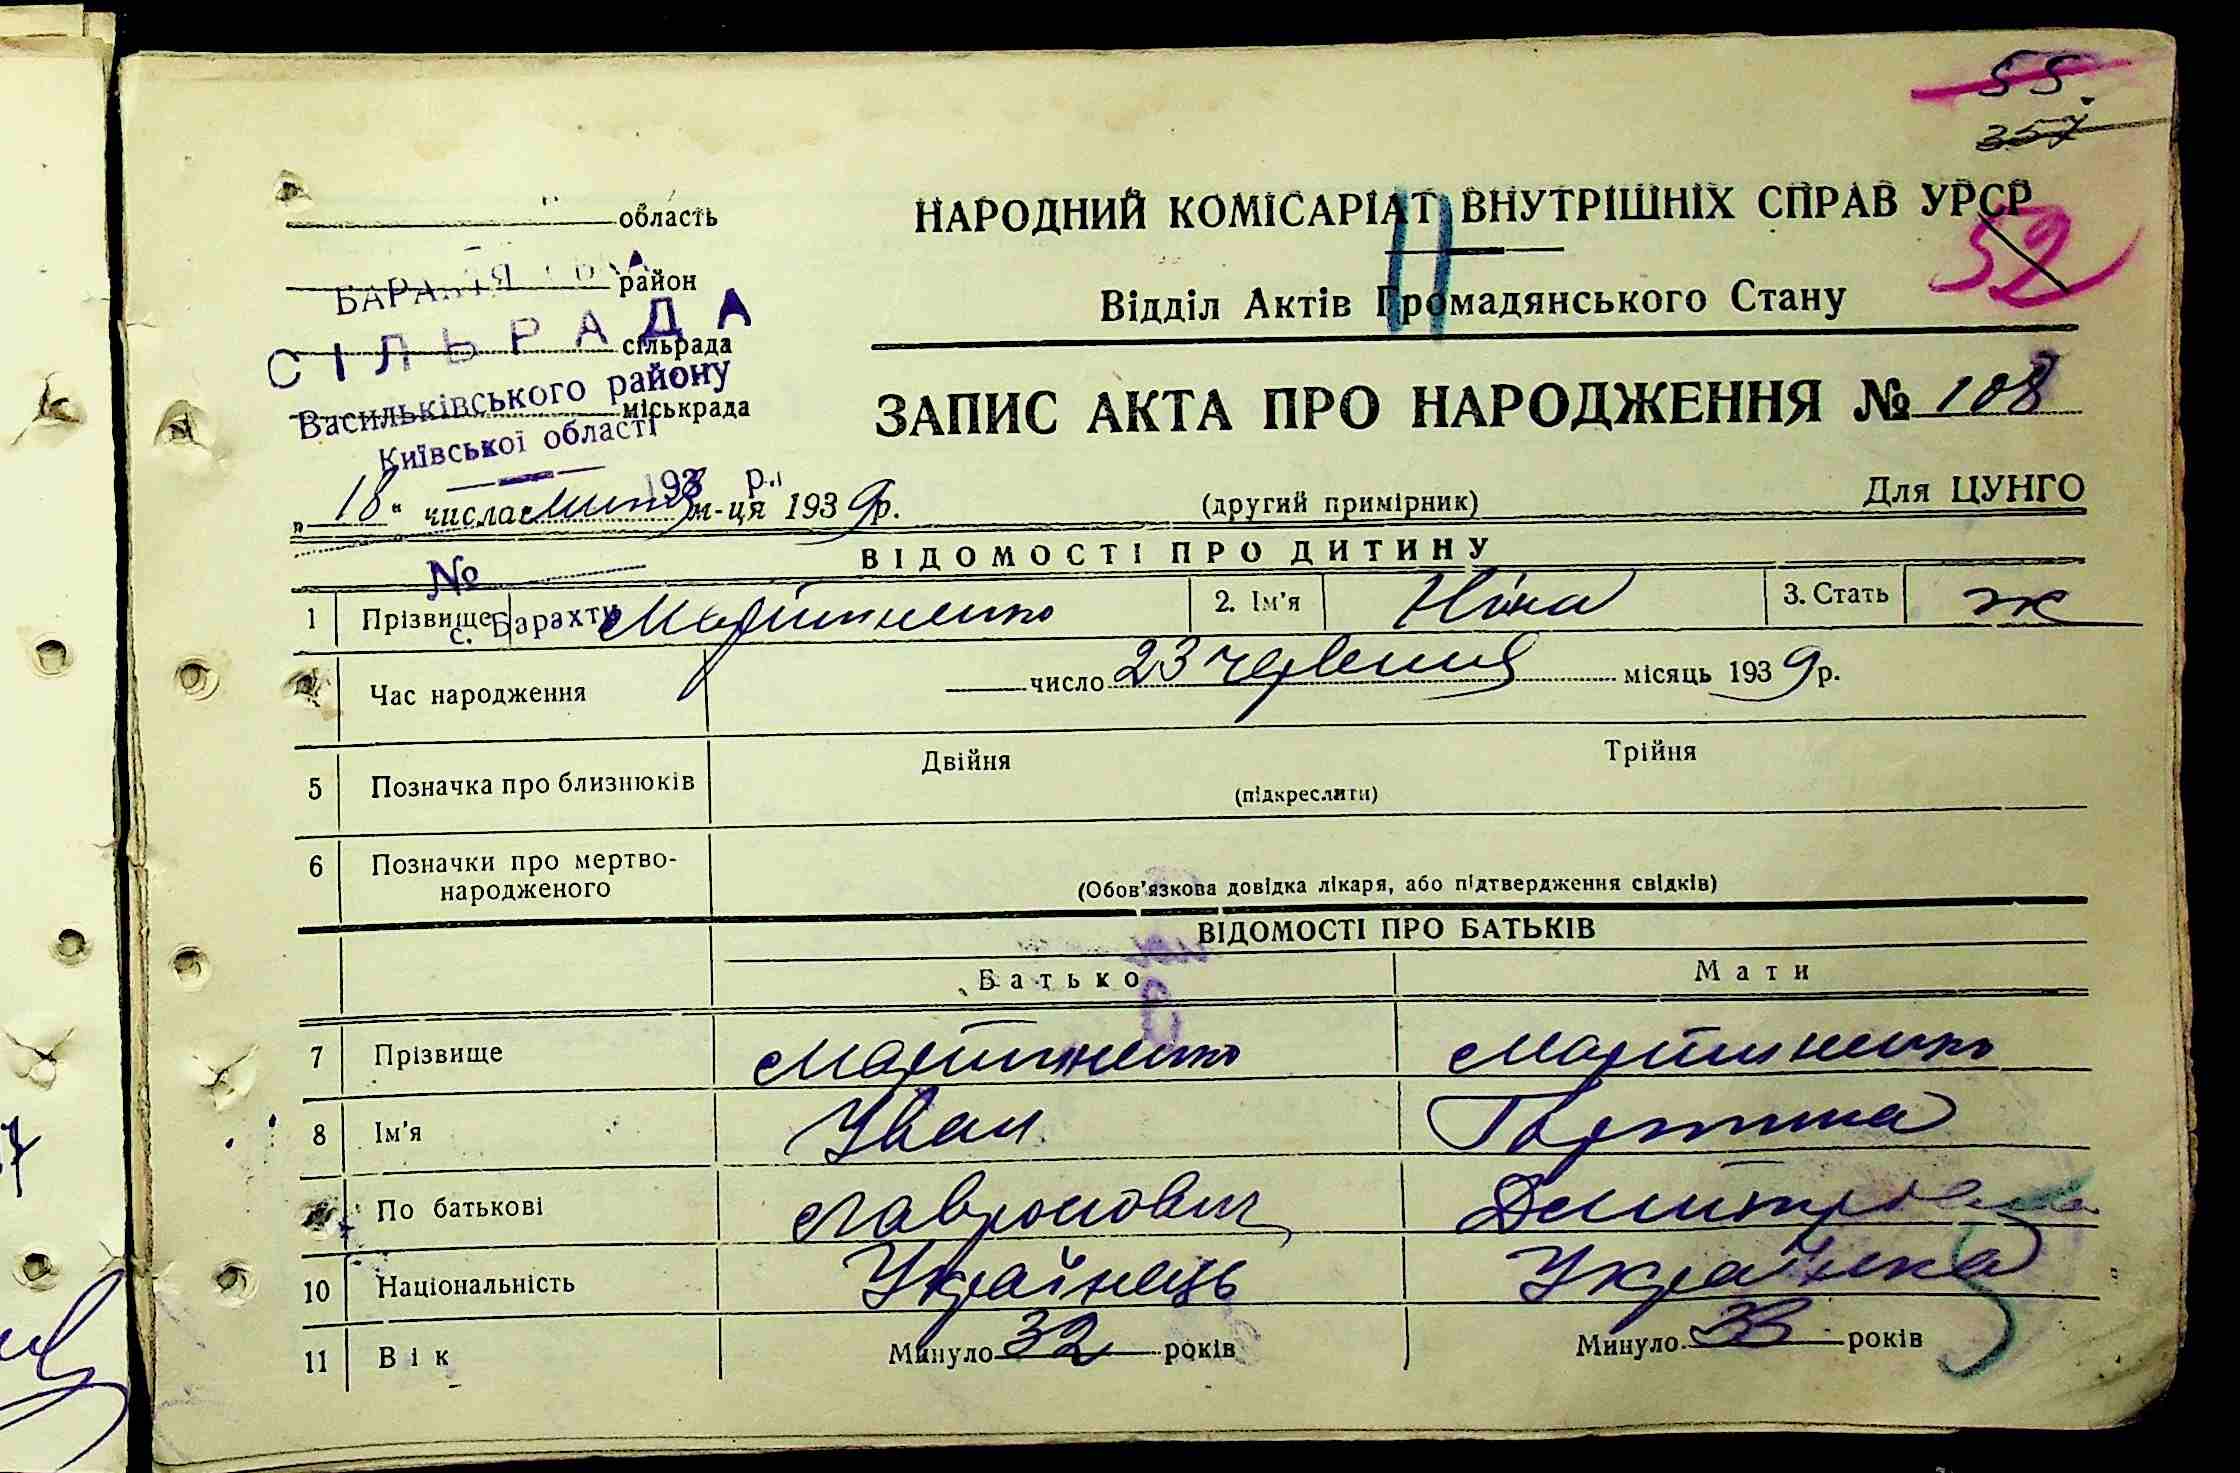 55.
357
НАРОДНИЙ КОМІСАРІАТ ВНУТРІШНІХ СПРАВ УРСР
52
Відділ Актів Громадянського Стану
область
район
сільрада
міськрада
СІЛЬРАДА
Васильківського району
Київської області
193 р.
№
с. Барахти
ЗАПИС АКТА ПРО НАРОДЖЕННЯ № 108
„18" числа липня м-ця 1939р.
(другий примірник)
Для ЦУНГО
ВІДОМОСТІ ПРО ДИТИНУ
1 Прізвище Мартиненко 2. Ім'я Ніна 3. Стать ж
Час народження число 23 червня місяць 1939р.
5 Позначка про близнюків Двійня Трійня
(підкреслити)
6 Позначки про мертво-
народженого
(Обов'язкова довідка лікаря, або підтвердження свідків)
ВІДОМОСТІ ПРО БАТЬКІВ
Батько Мати
7 Прізвище Мартиненко Мартиненко
8 Ім'я Іван
По батькові
10 Національність Українець Українка
11 Вік Минуло 32 років Минуло 33 років